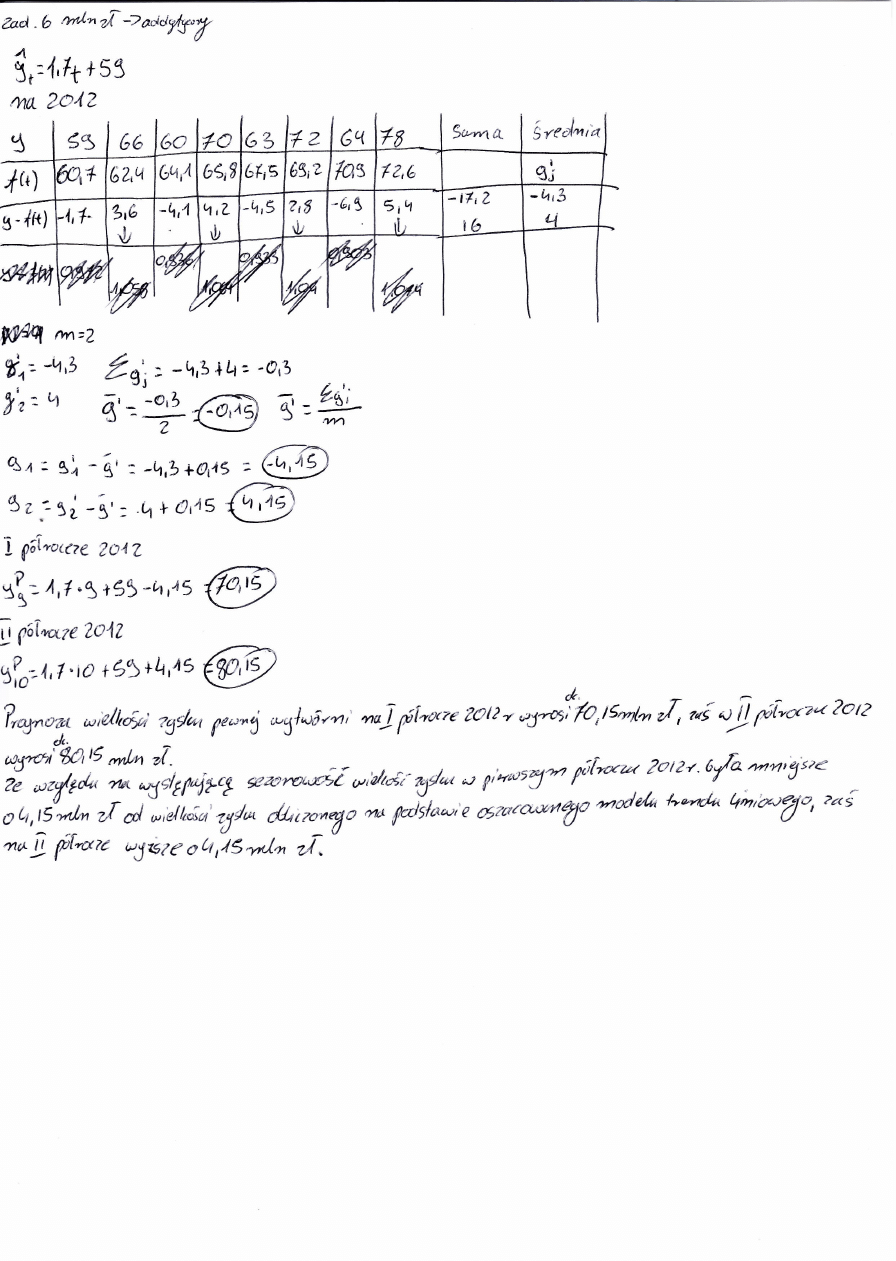 Zad. 6 mln zł → addytywny
ŷt = 1,7t + 59
na 2012
y 59 66 60 70 63 72 64 78 Suma Średnia
f(t) 60,7 62,4 64,1 65,8 67,5 69,2 70,9 72,6 g'j
y-f(t) -1,7 3,6 -4,1 4,2 -4,5 2,8 -6,9 5,4 -17,2 -4,3
↓ ↓ ↓ ↓ 16 4
m=2
g'1 = -4,3 Σg'j = -4,3+4 = -0,3
g'2 = 4 ḡ' = -0,3/2 = -0,15 ḡ' = Σg'j/m
g1 = g'1 - ḡ' = -4,3+0,15 = -4,15
g2 = g'2 - ḡ' = 4+0,15 = 4,15
I półrocze 2012
yP9 = 1,7·9+59-4,15 = 70,15
II półrocze 2012
yP10 = 1,7·10+59+4,15 = 80,15
Prognoza wielkości zysku pewnej wytwórni na I półrocze 2012r wynosi ok. 70,15 mln zł, zaś w II półroczu 2012
wynosi ok. 80,15 mln zł.
Ze względu na występującą sezonowość wielkość zysku w pierwszym półroczu 2012r. była mniejsze
o 4,15 mln zł od wielkości zysku obliczonego na podstawie oszacowanego modelu trendu liniowego, zaś
na II półrocze wyższe o 4,15 mln zł.